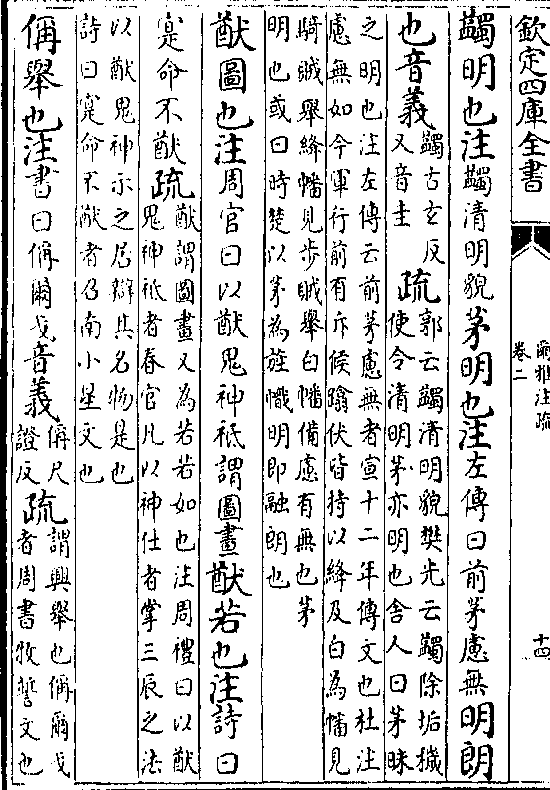 欽定四庫全書
爾雅注疏
卷二
十四
蠲明也注蠲清明貌茅明也注左傳曰前茅慮無明朗
也音義蠲古玄反
又音圭
疏郭云蠲清明貌樊光云蠲除垢穢
使令清明茅亦明也舍人曰茅昧
之明也注左傳云前茅慮無者宣十二年傳文也杜注
慮無如今軍行前有斥候蹹伏皆持以絳及白為幡見
騎賊舉絳幡見步賊舉白幡備慮有無也茅
明也或曰時楚以茅為旌幟明即融朗也
猷圖也注周官曰以猷鬼神祇謂圖畫猷若也注詩曰
寔命不猷疏猷謂圖畫又為若若如也注周禮曰以猷
鬼神祇者春官凡以神仕者掌三辰之法
以猷鬼神示之居辯其名物是也
詩曰寔命不猷者召南小星文也
偁舉也注書曰偁爾戈音義偁尺
證反
疏謂興舉也偁爾戈
者周書牧誓文也